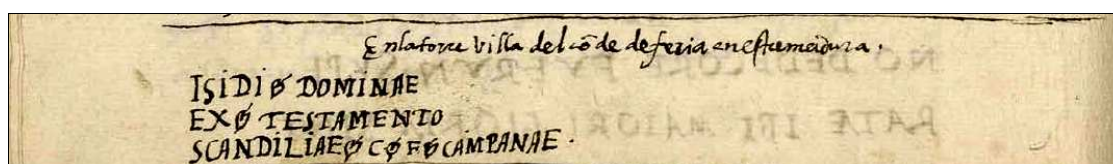 En la torre Villa del cõde de feria en estremadura.
ISIDI ∅ DOMINAE
EX ∅ TESTAMENTO
SCANDILIAE ∅ C ∅ F ∅ CAMPANAE .